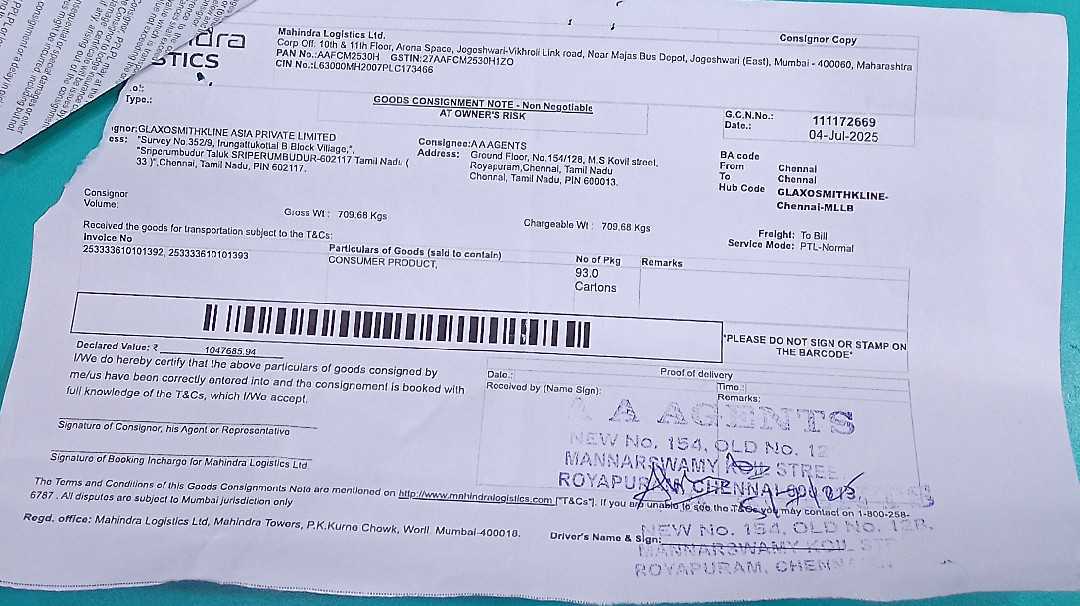 ndra
STICS
Mahindra Logistics Ltd.
Corp Off: 10th & 11th Floor, Arena Space, Jogeshwari-Vikhroli Link road, Near Majas Bus Depot, Jogeshwari (East), Mumbai - 400060, Maharashtra
PAN No.:AAFCM2530H GSTIN:27AAFCM2530H1ZO
CIN No.:L63000MH2007PLC173466
Consignor Copy
Type.:
GOODS CONSIGNMENT NOTE - Non Negotiable
AT OWNER'S RISK
G.C.N.No.: 111172669
Date.: 04-Jul-2025
gnor:GLAXOSMITHKLINE ASIA PRIVATE LIMITED
ess: "Survey No.352/9, Irungattukottai B Block Village,",
"Sriperumbudur Taluk SRIPERUMBUDUR-602117 Tamil Nadu (
33 )",Chennai, Tamil Nadu, PIN 602117.
Consignee:A A AGENTS
Address: Ground Floor, No.154/128, M.S Kovil street,
Royapuram,Chennai, Tamil Nadu
Chennai, Tamil Nadu, PIN 600013.
BA code
From Chennai
To Chennai
Hub Code GLAXOSMITHKLINE-
Chennai-MLLB
Consignor
Volume:
Gross Wt : 709.68 Kgs
Chargeable Wt : 709.68 Kgs
Freight: To Bill
Service Mode: PTL-Normal
Received the goods for transportation subject to the T&Cs:
Invoice No Particulars of Goods (said to contain) No of Pkg Remarks
253333610101392, 253333610101393 CONSUMER PRODUCT, 93.0
Cartons
"PLEASE DO NOT SIGN OR STAMP ON
THE BARCODE"
Declared Value: ₹ 1047685.94
I/We do hereby certify that the above particulars of goods consigned by
me/us have been correctly entered into and the consignement is booked with
full knowledge of the T&Cs, which I/We accept.
Proof of delivery
Date.: Time.:
Received by (Name Sign): Remarks:
A A AGENTS
NEW No. 154, OLD No. 12
MANNARSWAMY KOIL STREE
ROYAPURAM, CHENNAI-600 013.
Signature of Consignor, his Agent or Representative
Signature of Booking Incharge for Mahindra Logistics Ltd
The Terms and Conditions of this Goods Consignments Note are mentioned on http://www.mahindralogistics.com ["T&Cs"]. If you are unable to see the T&Cs you may contact on 1-800-258-
6787 . All disputes are subject to Mumbai jurisdiction only
Regd. office: Mahindra Logistics Ltd, Mahindra Towers, P.K.Kurne Chowk, Worli Mumbai-400018.
Driver's Name & Sign:
NEW No. 154, OLD No. 128,
MANNARSWAMY KOIL ST
ROYAPURAM, CHENN